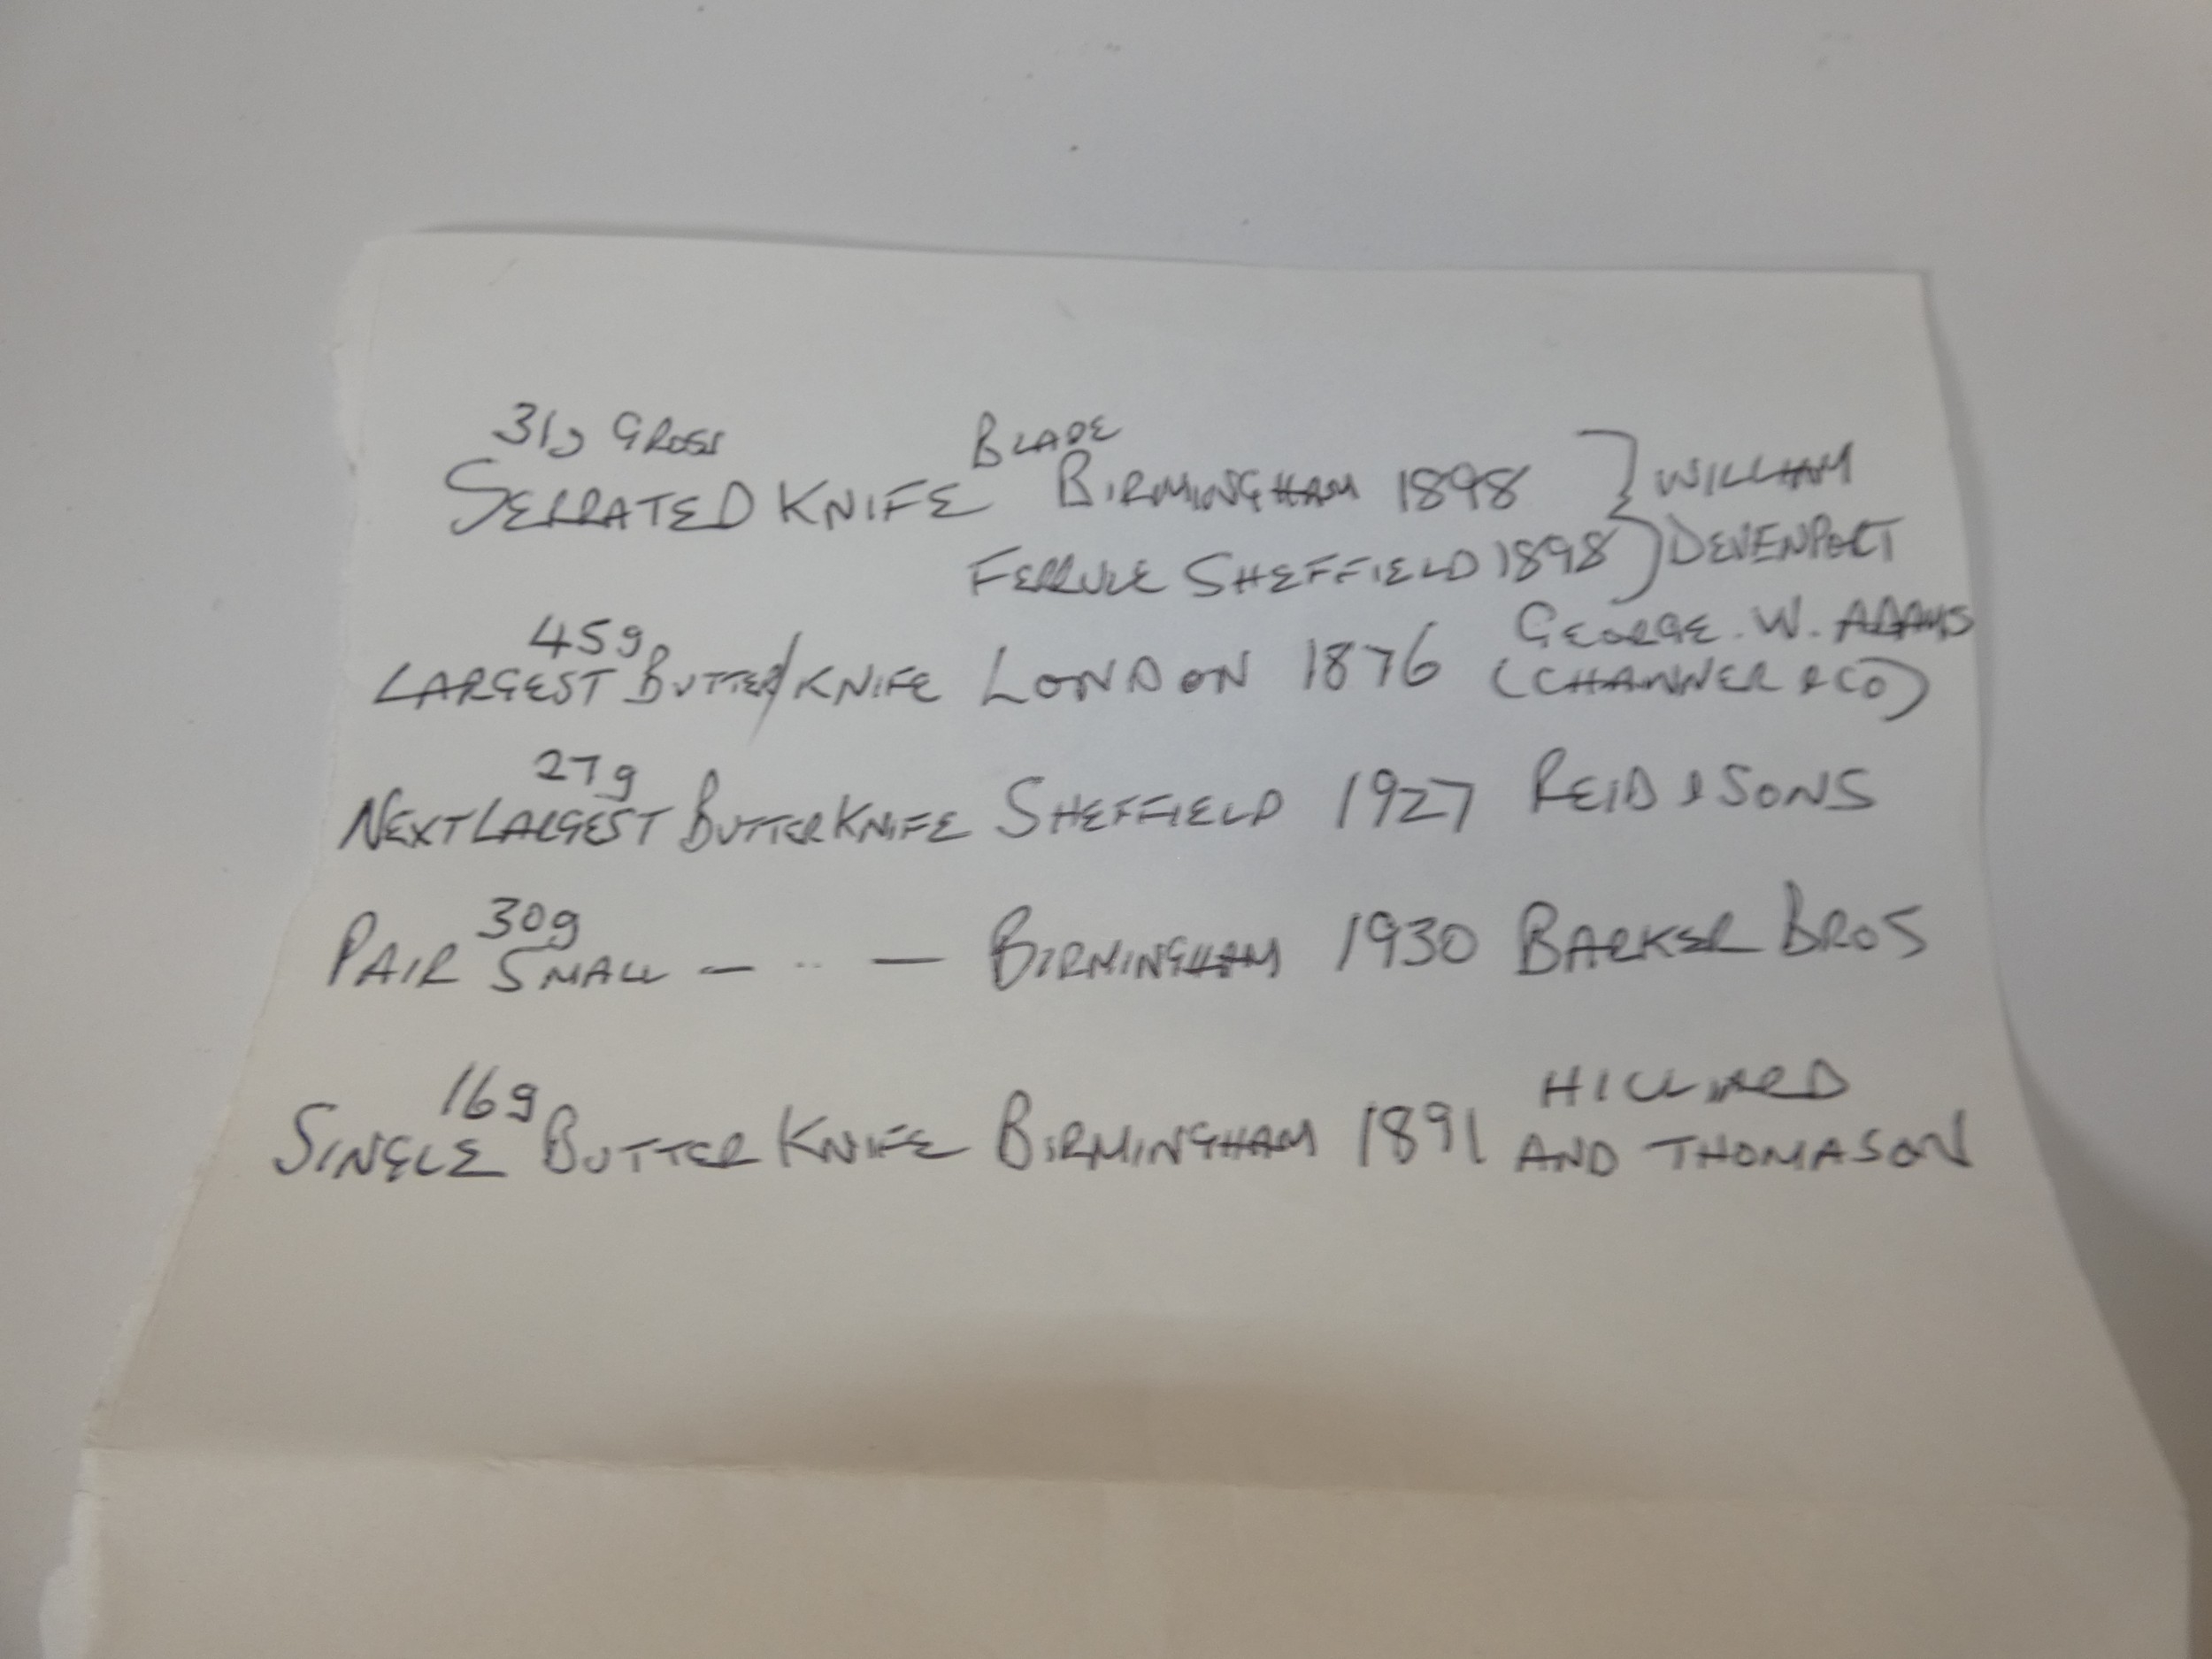 31g GROSS
SERRATED KNIFE BLADE BIRMINGHAM 1898 } WILLIAM
FERRULE SHEFFIELD 1898 } DEVENPORT
45g GEORGE. W. ADAMS
LARGEST BUTTER/KNIFE LONDON 1876 (CHAWNER & CO)
27g
NEXT LARGEST BUTTER KNIFE SHEFFIELD 1927 REID & SONS
30g
PAIR SMALL — ·· — BIRMINGHAM 1930 BARKER BROS
16g HILLIARD
SINGLE BUTTER KNIFE BIRMINGHAM 1891 AND THOMASON